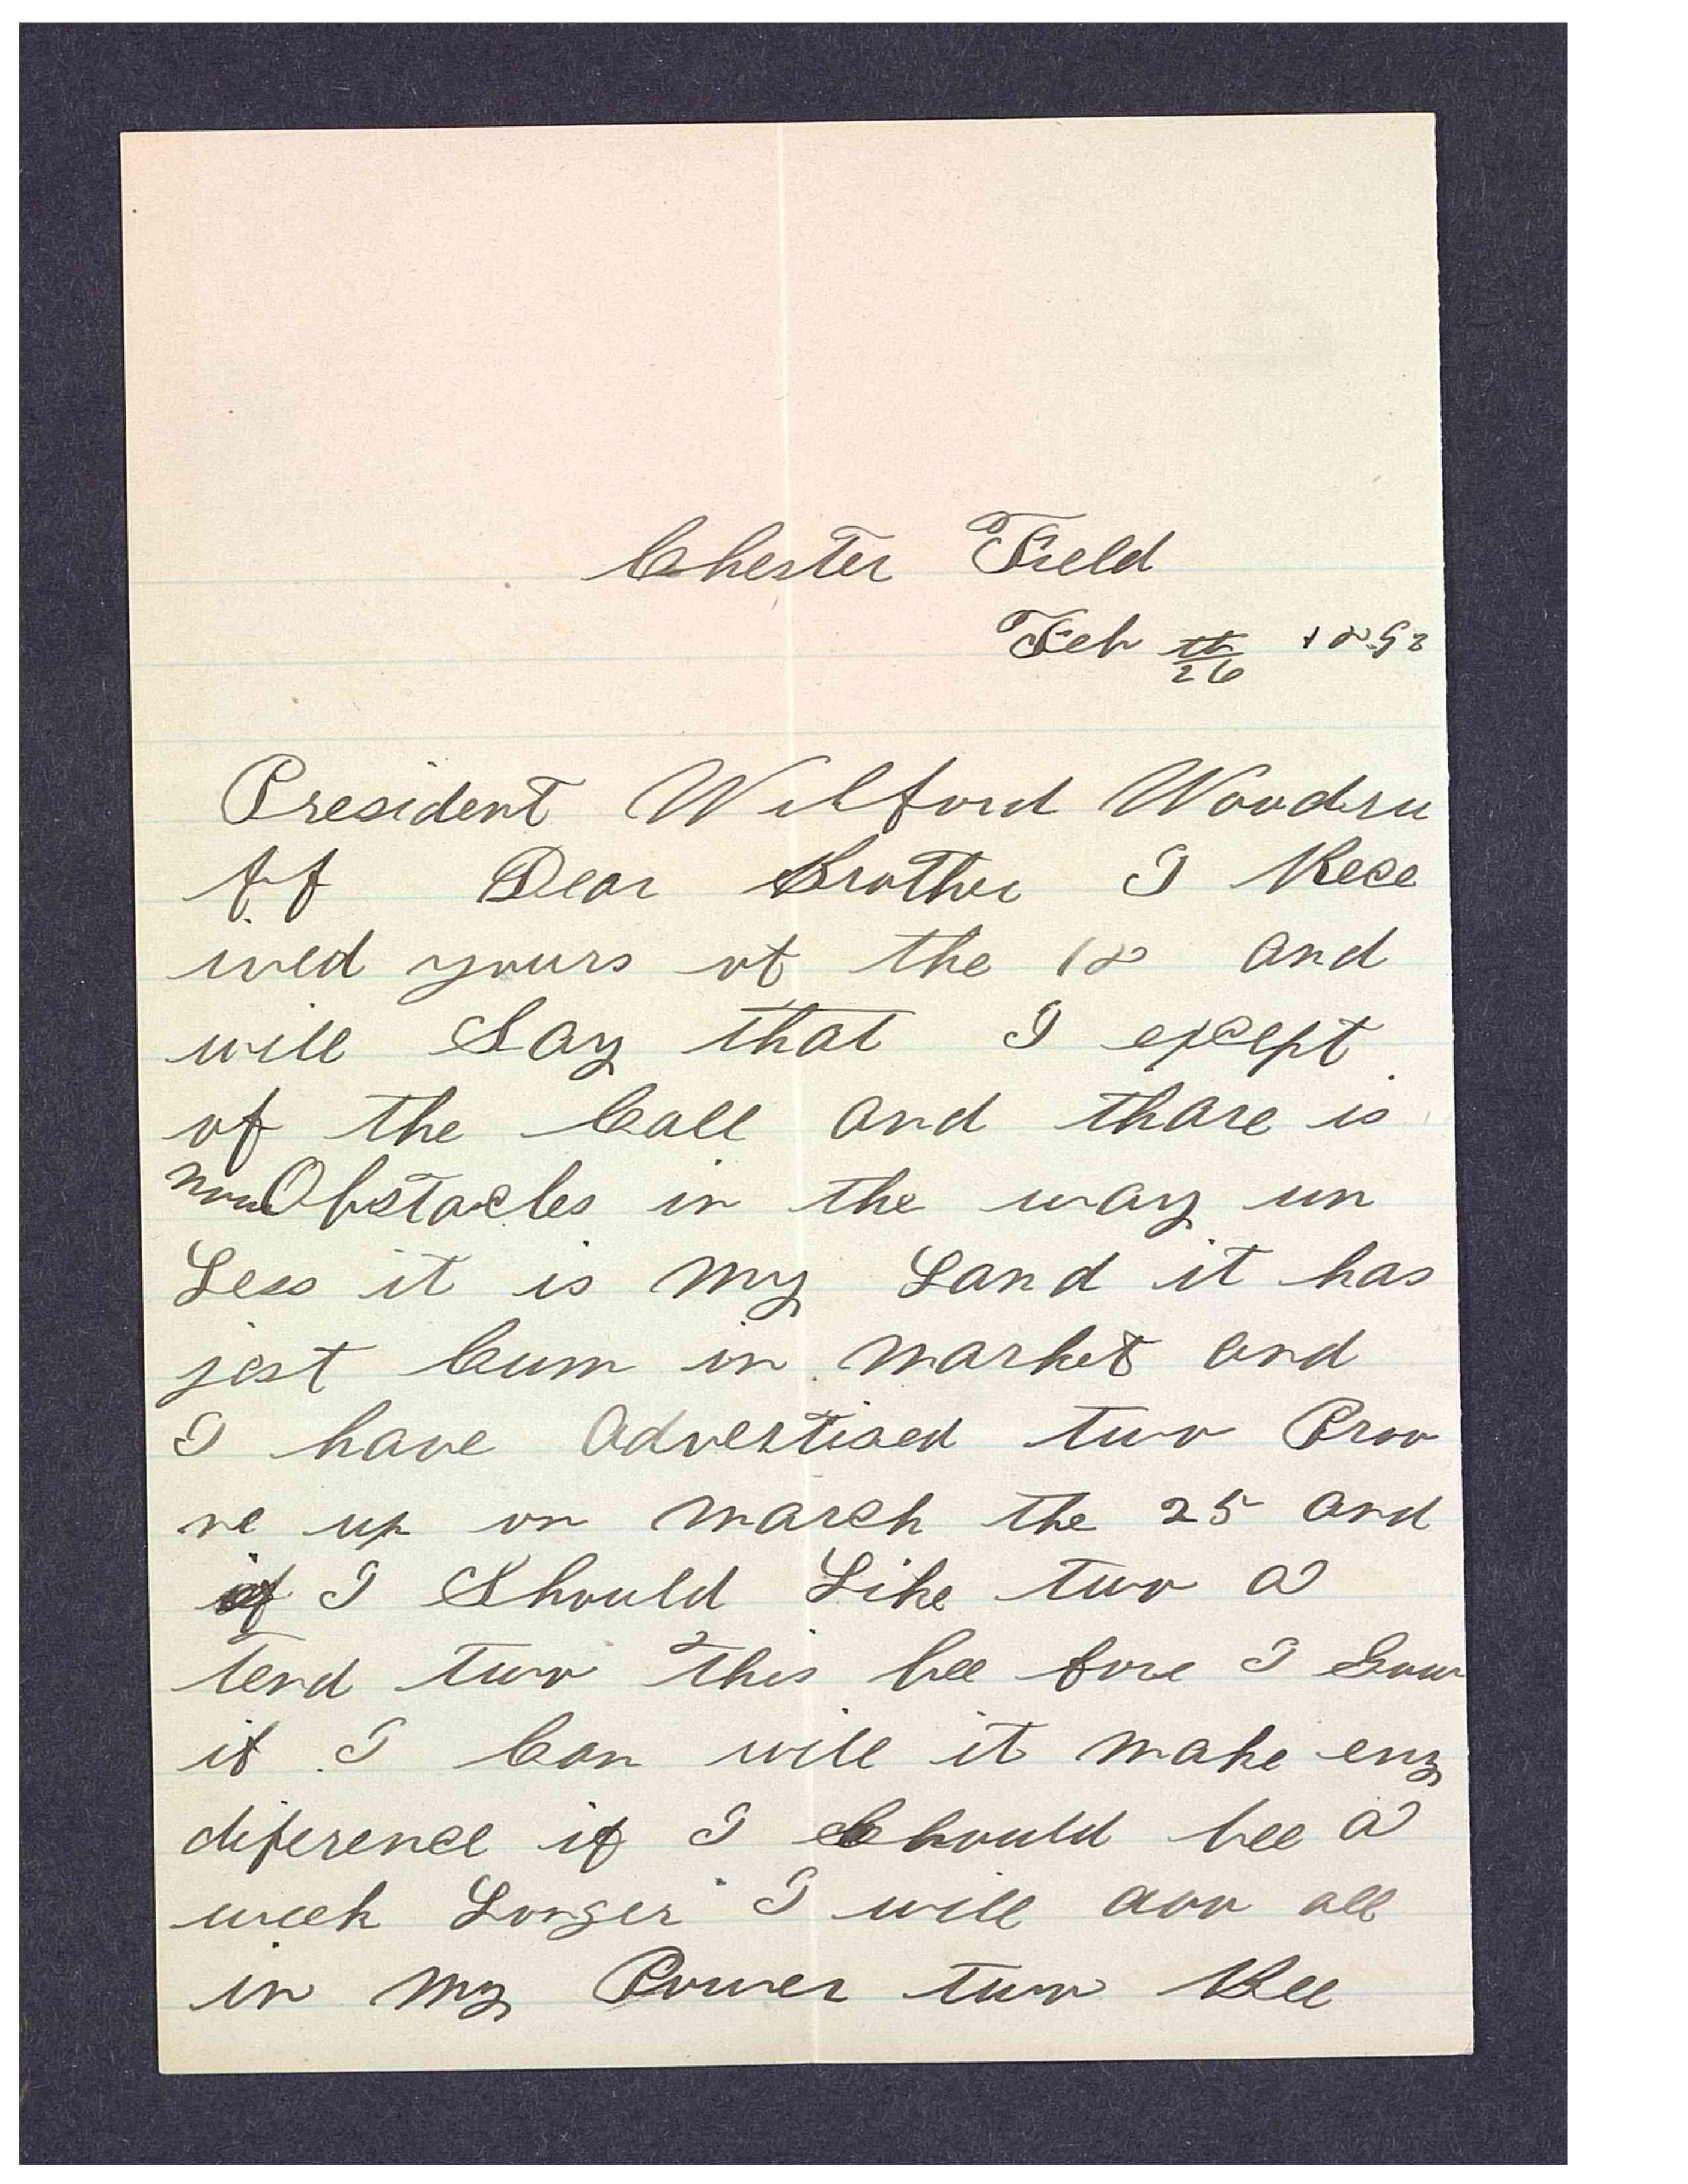 Chester Field
Feb 26th 1898
President Wilford Woodru
ff Dear Brother I Rece
ived yours of the 18 and
will Say that I except
of the Call and thare is
now Obstacles in the way un
Less it is my Land it has
jest Cum in market and
I have Advertised two Proo
ve up on march the 25 and
if I Should Like two a
tend two this bee fore I Gow
if I Can will it make eny
diference if I Should bee a
week Longer I will doo all
in my Power two Bee